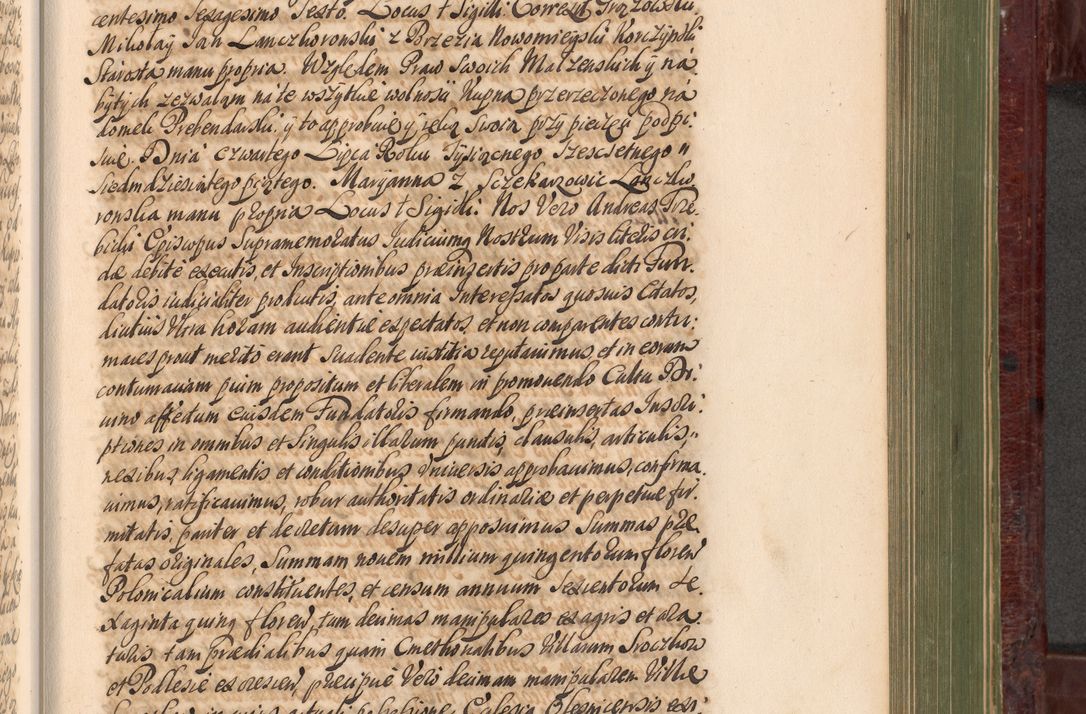 centesimo Sexagesimo Sexto. Locus † Sigilli: Correxit
Mikołay Jan Lanczkoronski z Brzezia Nowomieyski Korczynski
Starosta manu propria. Względem Praw Swoich Małzenskich y na
bytych zezwalam na te wszytkie wolnosci Kupna przerzeczonego na
domek Prebendarski, y to approbuię y ręką Swoią przy pieczęci podpi:
suię. Dnia czwartego Lipca Roku Tysiącnego Szescsetnego
siedmdziesiątego piątego. Maryanna z Lanczko
ronska manu propria Locus † Sigilli: Nos Vero Andreas Trze.
bicki Episcopus Supramemoratus Iudiciumq Nostrum Visis literis ci
dæ debite executis, et Inscriptionibus præinsertis pro parte dicti Fun
datoris iudicialiter productis, ante omnia Interessatos quosuis Citatos,
diutius Ultra horam audientiæ expectatos, et non comparentes contu:
maces prout merito erant Suadente iustitia reputauimus, et in eorum
contumaciam pium propositum et liberalem in promouendo Cultu Di:
uino affectum eiusdem Fundatoris firmando, præinsertas Inscri:
ptiones, in omnibus et Singulis illarum punctis, clausulis, articulis,
nexibus, ligamentis et conditionibus Vniuersis approbauimus, confirma.
uimus, ratificauimus, robur authoritatis ordinariæ et perpetuæ fir
mitatis, pariter et decretum desuper apposuimus Summas præ
fatas originales, Summam nouem millium quingentorum floren
Polonicalium constituentes, et censum annuum Sexcentorum Se
xaginta quinq floren, tum decimas manipulares ex agris et ara
turis tam prædialibus quam Cmethonalibus Villarum Sroczkow
et Podlesie ex crescen, præcipuè Vero decimam manipularem Villæ